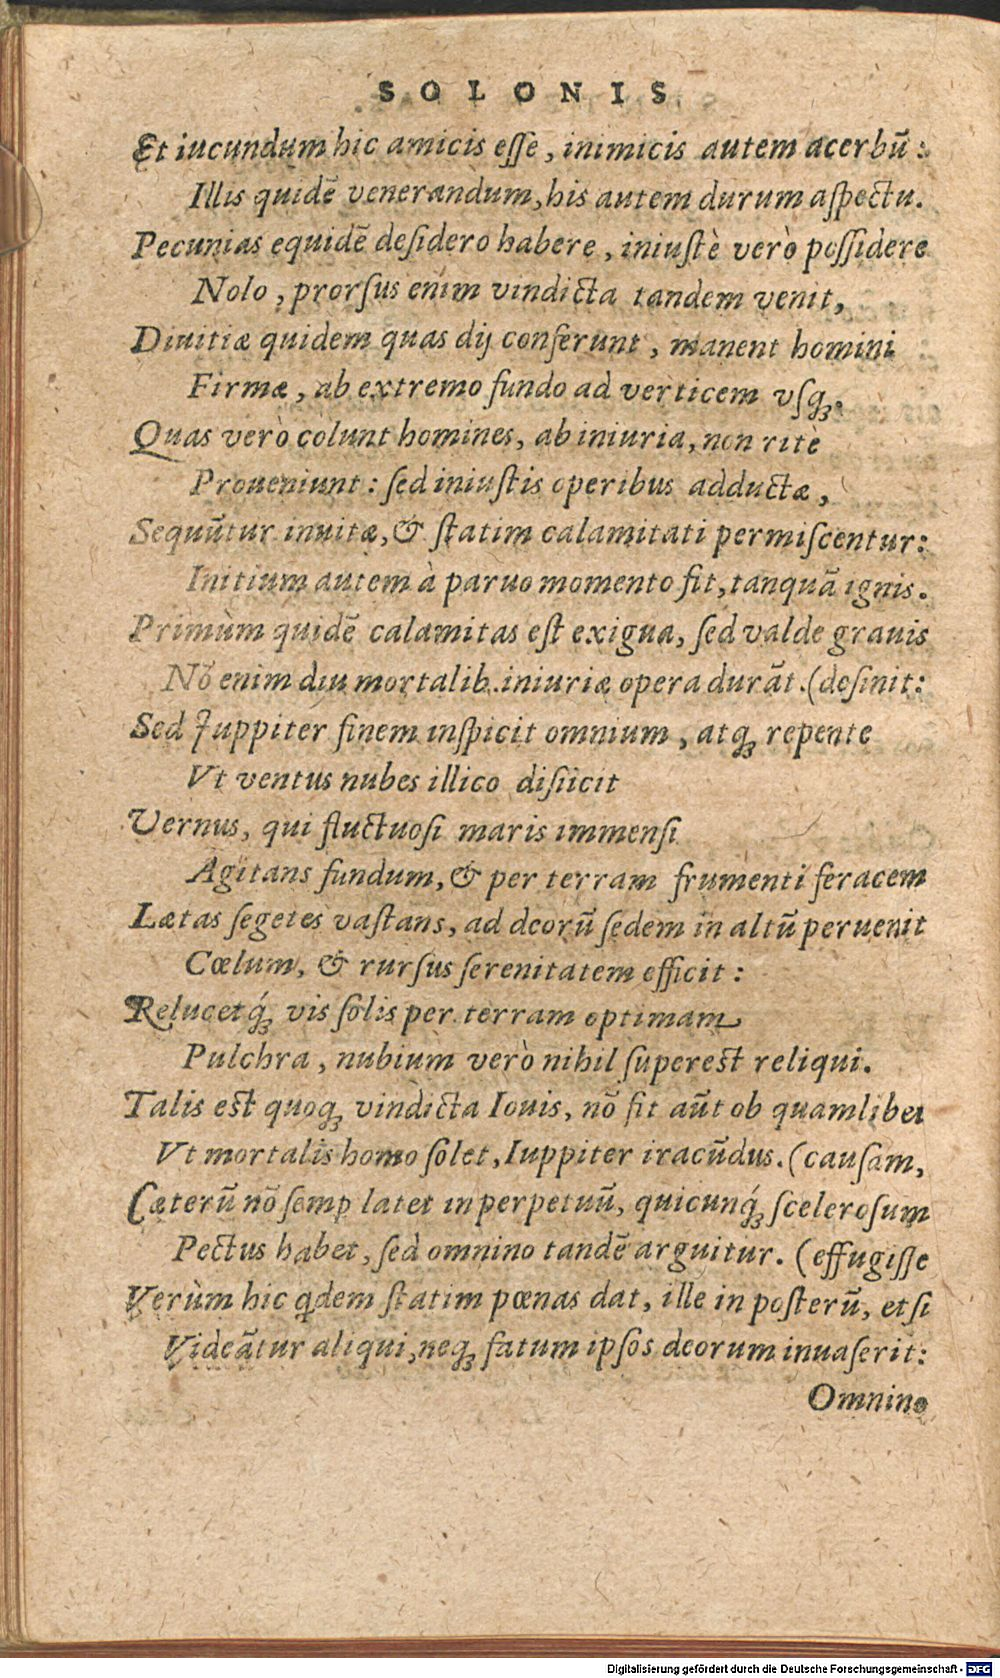 SOLONIS
Et iucundum hic amicis eſſe, inimicis autem acerbū:
Illis quidē venerandum, his autem durum aſpectu.
Pecunias equidē deſidero habere, iniuſtè verò poſſidere
Nolo, prorſus enim vindicta tandem venit,
Diuitiæ quidem quas dij conferunt, manent homini
Firmæ, ab extremo fundo ad verticem vſqꝫ.
Quas verò colunt homines, ab iniuria, non ritè
Proueniunt: ſed iniuſtis operibus adductæ,
Sequūtur inuitæ, & ſtatim calamitati permiſcentur:
Initium autem à paruo momento fit, tanquā ignis.
Primùm quidē calamitas eſt exigua, ſed valde grauis
Nō enim diu mortalib. iniuriæ opera durāt. (deſinit:
Sed Juppiter finem inſpicit omnium, atqꝫ repente
Vt ventus nubes illico diſiicit
Vernus, qui fluctuoſi maris immenſi
Agitans fundum, & per terram frumenti feracem
Lætas ſegetes vaſtans, ad deorū ſedem in altū peruenit
Cœlum, & rurſus ſerenitatem efficit:
Relucetq́ꝫ vis ſolis per terram optimam
Pulchra, nubium verò nihil ſupereſt reliqui.
Talis eſt quoqꝫ vindicta Iouis, nō fit aūt ob quamlibet
Vt mortalis homo ſolet, Iuppiter iracūdus. (cauſam,
Cæterū nō ſemp latet in perpetuū, quicunq́ꝫ sceleroſum
Pectus habet, ſed omnino tandē arguitur. (effugiſſe
Verùm hic qdem ſtatim pœnas dat, ille in poſterū, etſi
Videātur aliqui, neqꝫ fatum ipſos deorum inuaſerit:
Omnino
Digitalisierung gefördert durch die Deutsche Forschungsgemeinschaft - DFG